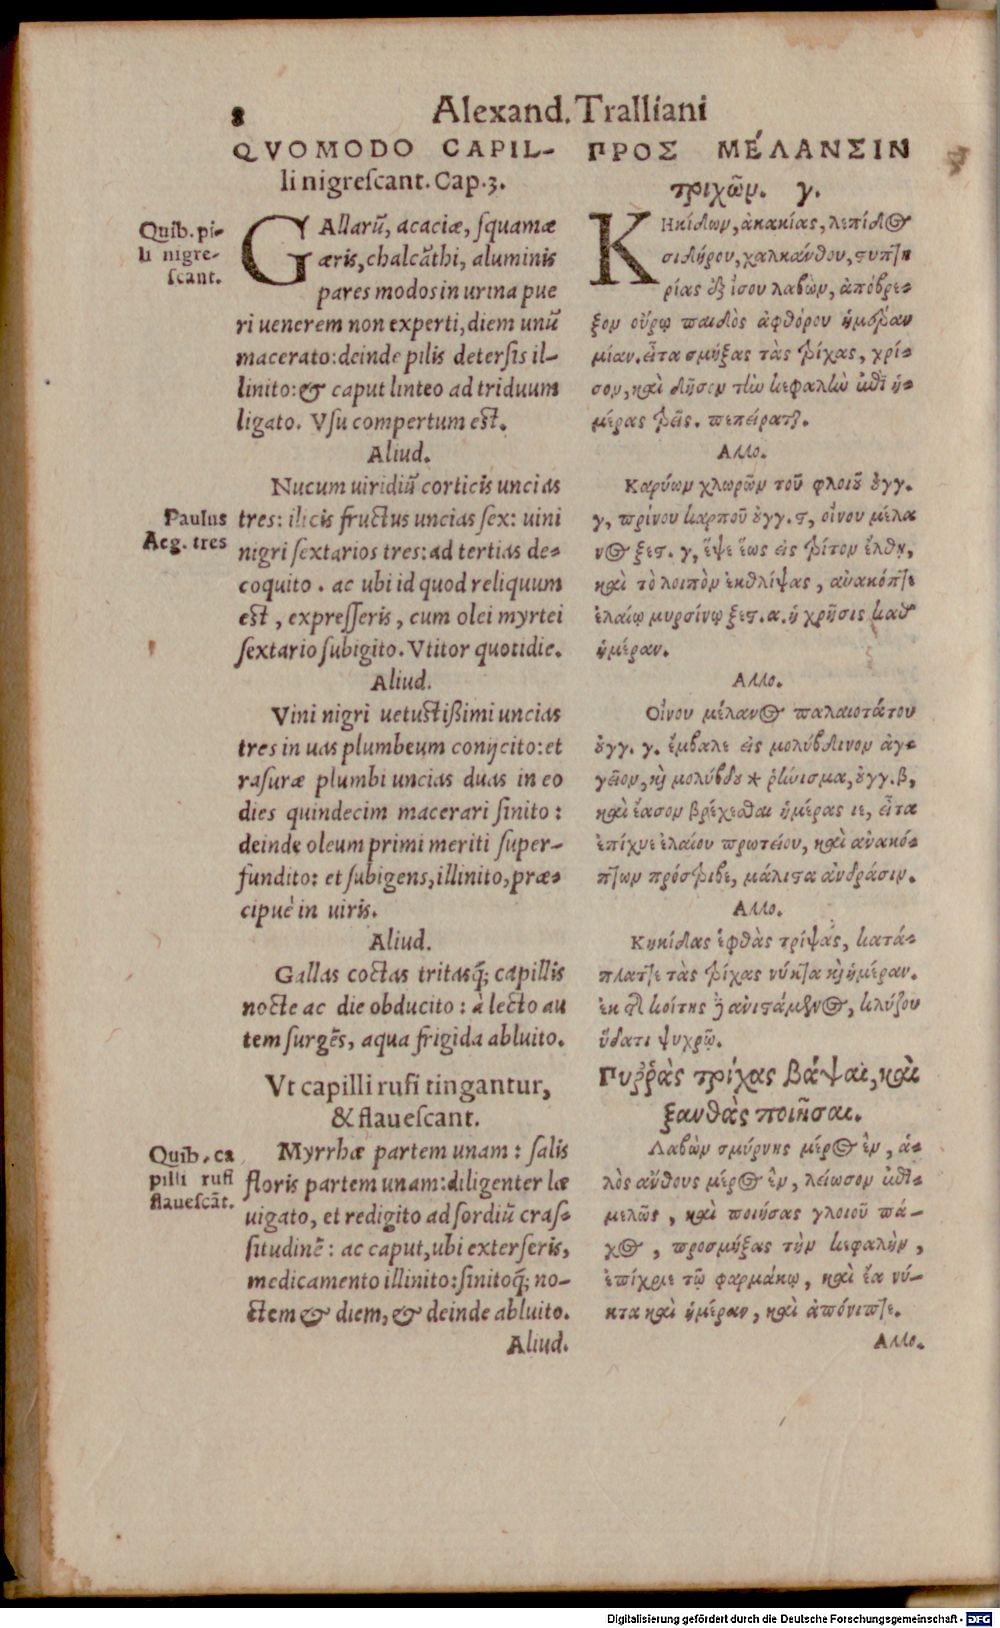 8
Alexand. Tralliani
QVOMODO CAPIL-
li nigreſcant. Cap.3.
Quib. pi-
li nigre-
ſcant.
GAllarū, acaciæ, ſquamæ
æris, chalcāthi, aluminis
pares modos in urina pue
ri uenerem non experti, diem unū
macerato: deinde pilis deterſis il-
linito: & caput linteo ad triduum
ligato. Vſu compertum eſt.
Aliud.
Nucum uiridiū corticis uncias
Paulus
Aeg. tres
tres: ilicis fructus uncias ſex: uini
nigri ſextarios tres: ad tertias de-
coquito. ac ubi id quod reliquum
eſt, expreſſeris, cum olei myrtei
ſextario ſubigito. Vtitor quotidie.
Aliud.
Vini nigri uetuſtißimi uncias
tres in uas plumbeum conijcito: et
raſuræ plumbi uncias duas in eo
dies quindecim macerari ſinito:
deinde oleum primi meriti ſuper-
fundito: et ſubigens, illinito, præ-
cipuè in uiris.
Aliud.
Gallas coctas tritasq́; capillis
nocte ac die obducito: à lecto au
tem ſurgēs, aqua frigida abluito.
Vt capilli rufi tingantur,
& flaueſcant.
Quib. ca
pilli rufi
flaueſcāt.
Myrrhæ partem unam: ſalis
floris partem unam: diligenter læ
uigato, et redigito ad ſordiū craſ-
ſitudinē: ac caput, ubi exterſeris,
medicamento illinito: ſinitoq́; no-
ctem & diem, & deinde abluito.
Aliud.
ΠΡΟΣ ΜΈΛΑΝΣΙΝ
τριχῶν. γ.
ΚΗκίδων, ἀκακίας, λεπίδος
σιδήρου, χαλκάνθου, στυπτη
ρίας ἐξ ἴσου λαβὼν, ἀπόβρε-
ξον οὔρῳ παιδὸς ἀφθόρου ἡμέραν
μίαν. εἶτα σμήξας τὰς τρίχας, χρί-
σον, καὶ δῆσον τὴν κεφαλὴν ἐπὶ ἡ-
μέρας τρεῖς. πεπείραται.
Αλλο.
Καρύων χλωρῶν τοῦ φλοιοῦ οὐγγ.
γ, πρίνου καρποῦ οὐγγ. ϛ, οἴνου μέλα
νος ξεστ. γ, ἕψε ἕως εἰς τρίτον ἔλθῃ,
καὶ τὸ λοιπὸν ἐκθλίψας, ἀνακόπτε
ἐλαίῳ μυρσίνῳ ξεστ. α. ἡ χρῆσις καθ'
ἡμέραν.
Αλλο.
Οἴνου μέλανος παλαιοτάτου
οὐγγ. γ. ἔμβαλε εἰς μολύβδινον ἀγ-
γεῖον, καὶ μολύβδου * ῥίνισμα, οὐγγ. β,
καὶ ἔασον βρέχεσθαι ἡμέρας ιε, εἶτα
ἐπίχυε ἐλαίου πρωτείου, καὶ ἀνακό-
πτων πρόστριβε, μάλιστα ἀνδράσιν.
Αλλο.
Κηκίδας ἑφθὰς τρίψας, κατά-
πλαττε τὰς τρίχας νύκτα καὶ ἡμέραν.
ἐκ τῆς κοίτης δὲ ἀνιστάμενος, κλύζου
ὕδατι ψυχρῷ.
Πυῤῥὰς τρίχας βάψαι, καὶ
ξανθὰς ποιῆσαι.
Λαβὼν σμύρνης μέρος ἓν, ἁ-
λὸς ἄνθους μέρος ἓν, λείωσον ἐπι-
μελῶς, καὶ ποιήσας γλοιοῦ πά-
χος, προσμήξας τὴν κεφαλὴν,
ἐπίχριε τῷ φαρμάκῳ, καὶ ἔα νύ-
κτα καὶ ἡμέραν, καὶ ἀπόνιπτε.
Αλλο.
Digitalisierung gefördert durch die Deutsche Forschungsgemeinschaft - DFG